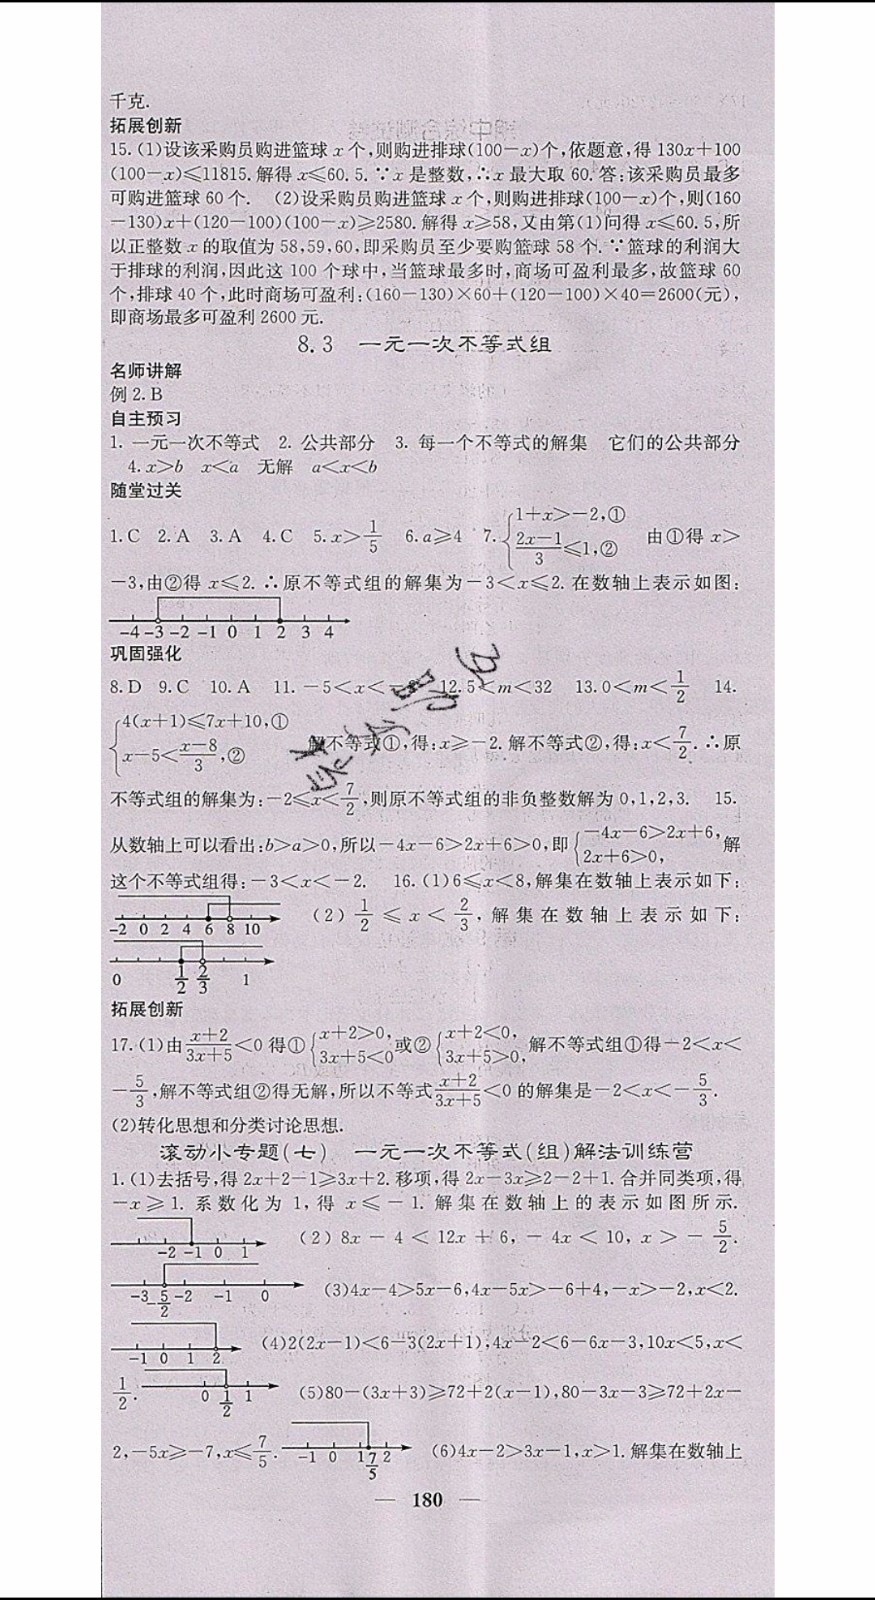 千克.
拓展创新
15.(1)设该采购员购进篮球 x 个,则购进排球(100−x)个,依题意,得 130x+100
(100−x)⩽11815.解得 x⩽60.5.∵x 是整数,∴x 最大取 60.答:该采购员最多
可购进篮球 60 个. (2)设采购员购进篮球 x 个,则购进排球(100−x)个,则(160
−130)x+(120−100)(100−x)⩾2580.解得 x⩾58,又由第(1)问得 x⩽60.5,所
以正整数 x 的取值为 58,59,60,即采购员至少要购篮球 58 个.∵篮球的利润大
于排球的利润,因此这 100 个球中,当篮球最多时,商场可盈利最多,故篮球 60
个,排球 40 个,此时商场可盈利:(160−130)×60+(120−100)×40=2600(元),
即商场最多可盈利 2600 元.
8.3 一元一次不等式组
名师讲解
例 2.B
自主预习
1. 一元一次不等式 2. 公共部分 3. 每一个不等式的解集 它们的公共部分
4.x>b x<a 无解 a<x<b
随堂过关
1.C 2.A 3.A 4.C 5.x>1/5 6.a⩾4 7.{1+x>−2,① (2x−1)/3⩽1,② 由①得 x>
−3,由②得 x⩽2.∴原不等式组的解集为−3<x⩽2.在数轴上表示如图:
−4 −3 −2 −1 0 1 2 3 4
巩固强化
8.D 9.C 10.A 11.−5<x<− 12.5<m<32 13.0<m<1/2 14.
{4(x+1)⩽7x+10,① x−5<(x−8)/3,② 解不等式①,得:x⩾−2.解不等式②,得:x<7/2.∴原
不等式组的解集为:−2⩽x<7/2,则原不等式组的非负整数解为 0,1,2,3. 15.
从数轴上可以看出:b>a>0,所以−4x−6>2x+6>0,即{−4x−6>2x+6, 2x+6>0, 解
这个不等式组得:−3<x<−2. 16.(1)6⩽x<8,解集在数轴上表示如下:
−2 0 2 4 6 8 10 (2)1/2⩽x<2/3,解集在数轴上表示如下:
0 1/2 2/3 1
拓展创新
17.(1)由(x+2)/(3x+5)<0 得①{x+2>0, 3x+5<0 或②{x+2<0, 3x+5>0, 解不等式组①得−2<x<
−5/3,解不等式组②得无解,所以不等式(x+2)/(3x+5)<0 的解集是−2<x<−5/3.
(2)转化思想和分类讨论思想.
滚动小专题(七) 一元一次不等式(组)解法训练营
1.(1)去括号,得 2x+2−1⩾3x+2.移项,得 2x−3x⩾2−2+1.合并同类项,得
−x⩾1.系数化为 1,得 x⩽−1.解集在数轴上的表示如图所示.
−2 −1 0 1 (2)8x−4<12x+6,−4x<10,x>−5/2.
−3 −5/2 −2 −1 0 (3)4x−4>5x−6,4x−5x>−6+4,−x>−2,x<2.
−1 0 1 2 (4)2(2x−1)<6−3(2x+1),4x−2<6−6x−3,10x<5,x<
1/2. 0 1/2 1 (5)80−(3x+3)⩾72+2(x−1),80−3x−3⩾72+2x−
2,−5x⩾−7,x⩽7/5. −1 0 1 7/5 2 (6)4x−2>3x−1,x>1.解集在数轴上
— 180 —